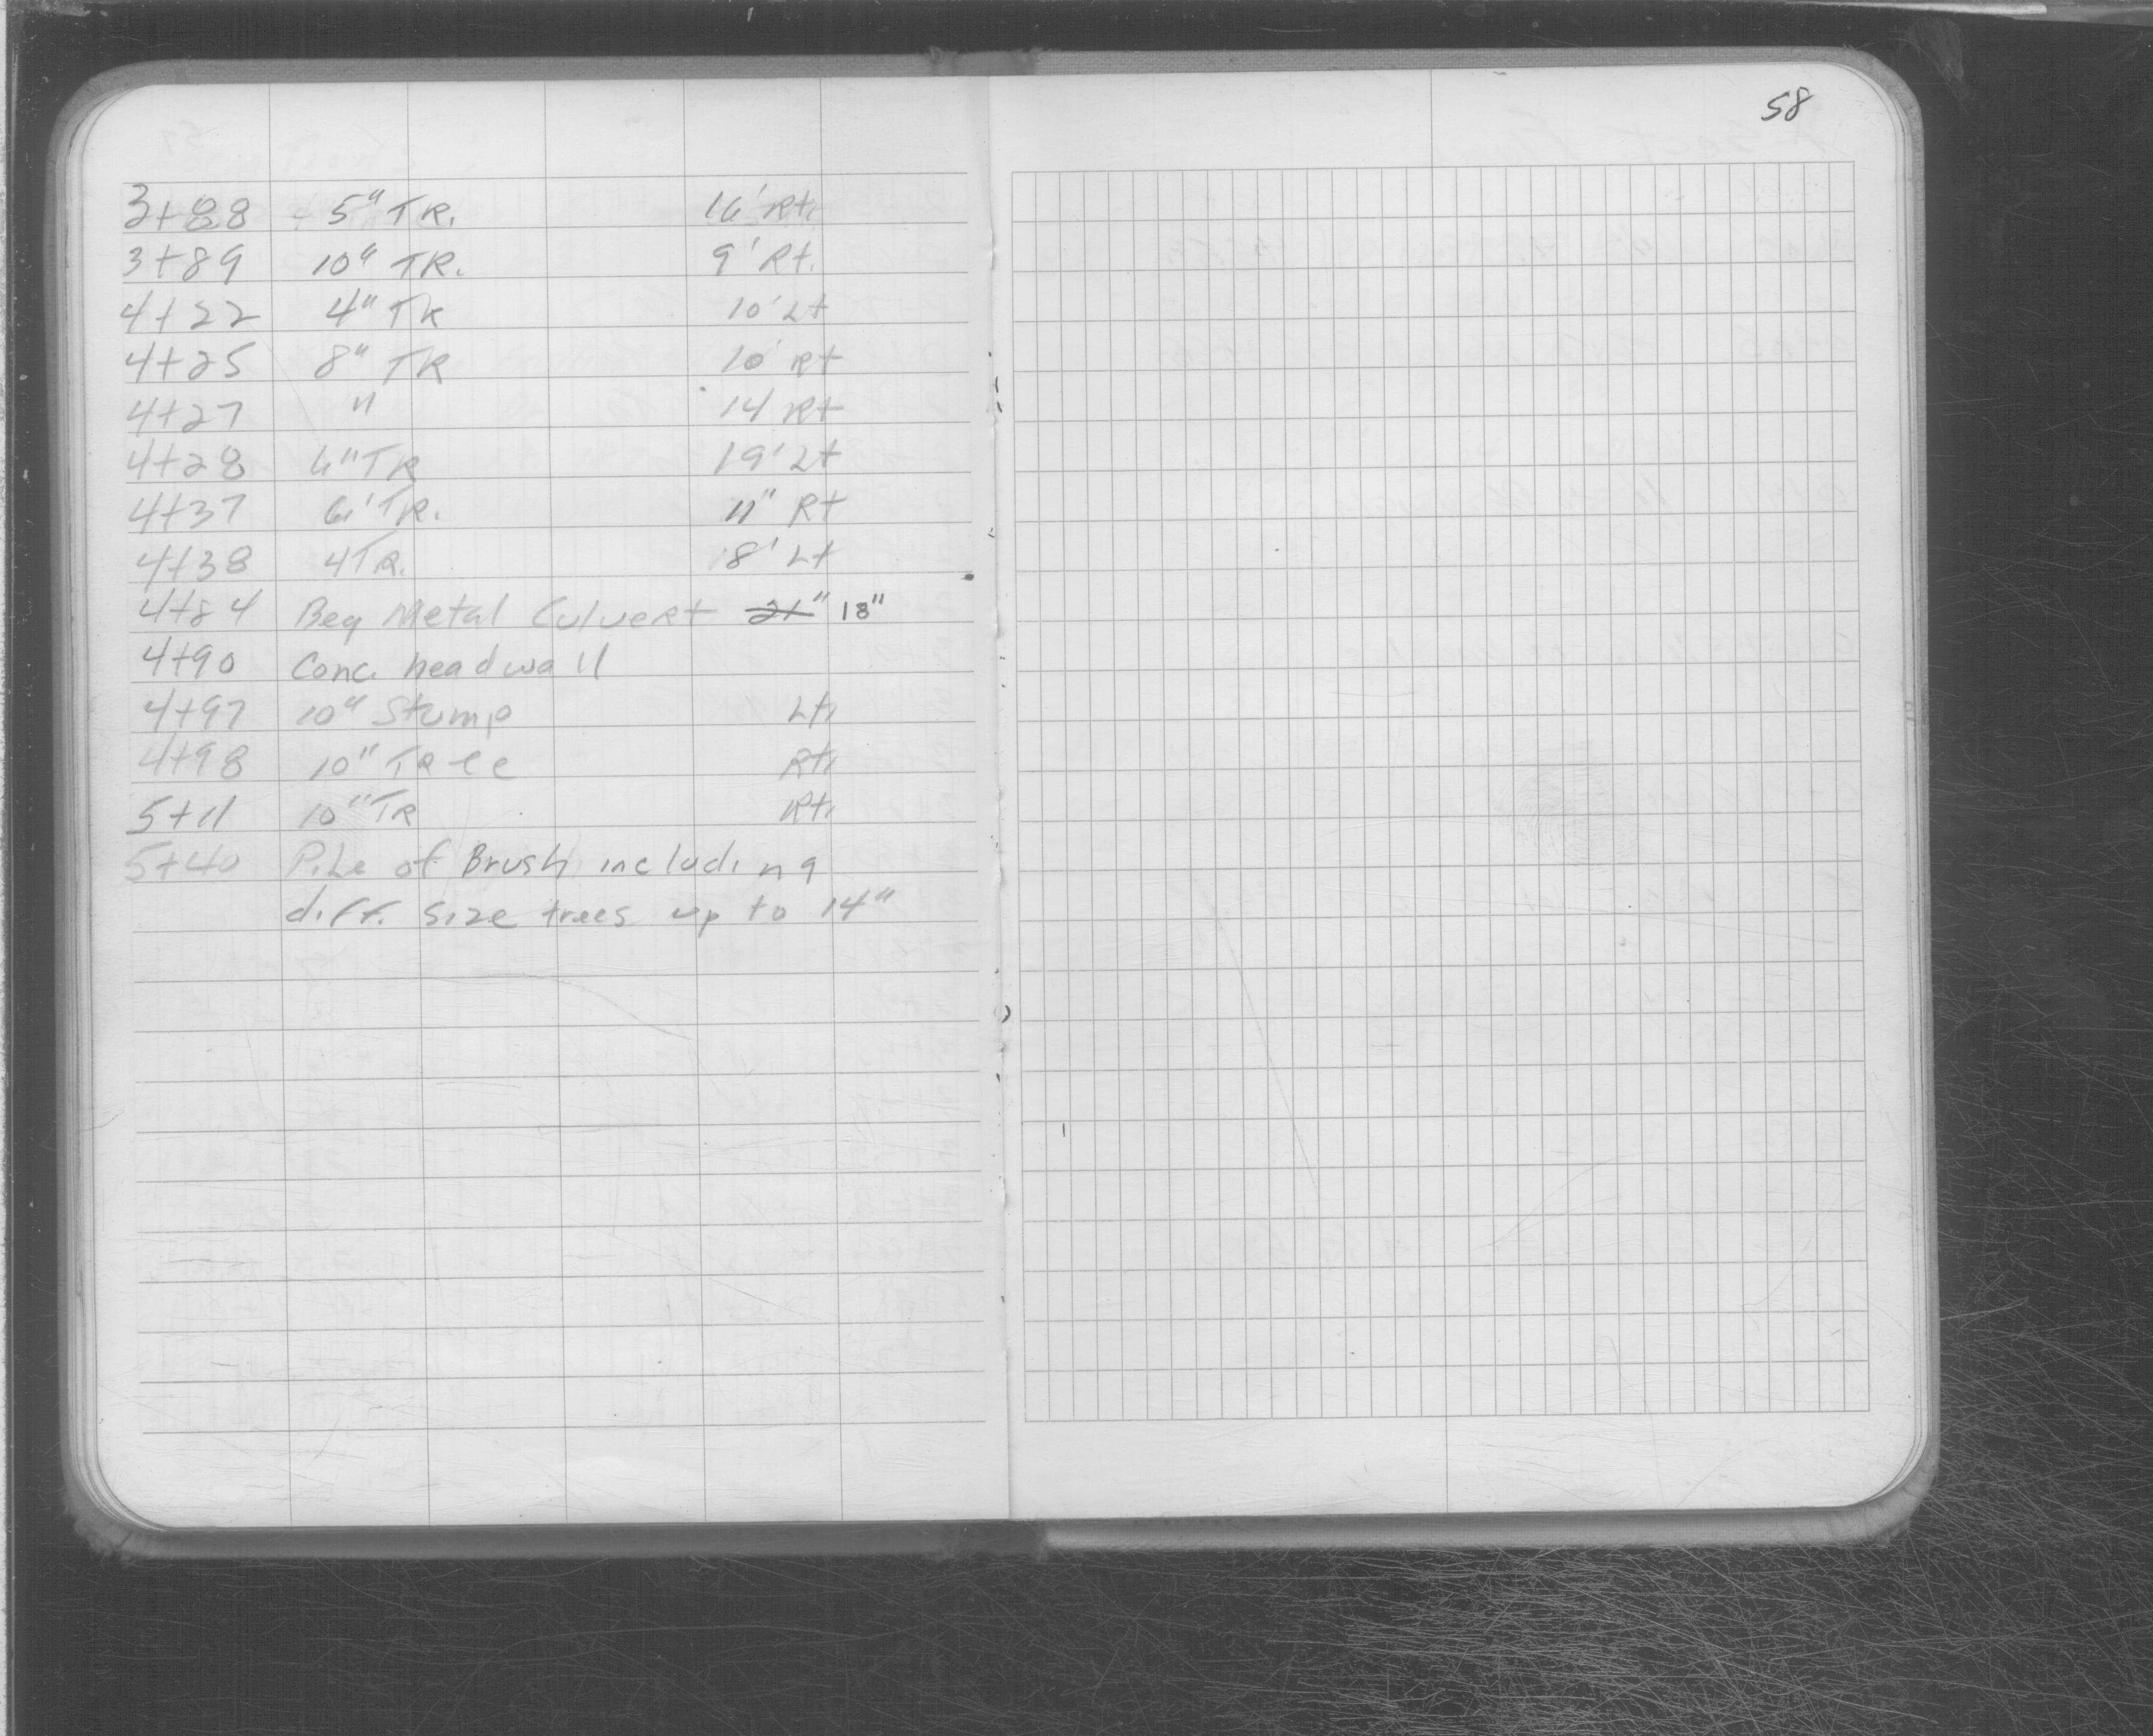 58
3+88 5" TR. 16' Rt.
3+89 10" TR. 9' Rt.
4+22 4" TR 10' Lt
4+25 8" TR 10' Rt
4+27 " 14 Rt
4+28 6" TR 19' Lt
4+37 6' TR. 11" Rt
4+38 4 TR. 18' Lt
4+84 Beg Metal Culvert 21" 18"
4+90 Conc. headwall
4+97 10" Stump Lt.
4+98 10" TRee Rt.
5+11 10" TR Rt.
5+40 Pile of Brush including
diff. size trees up to 14"